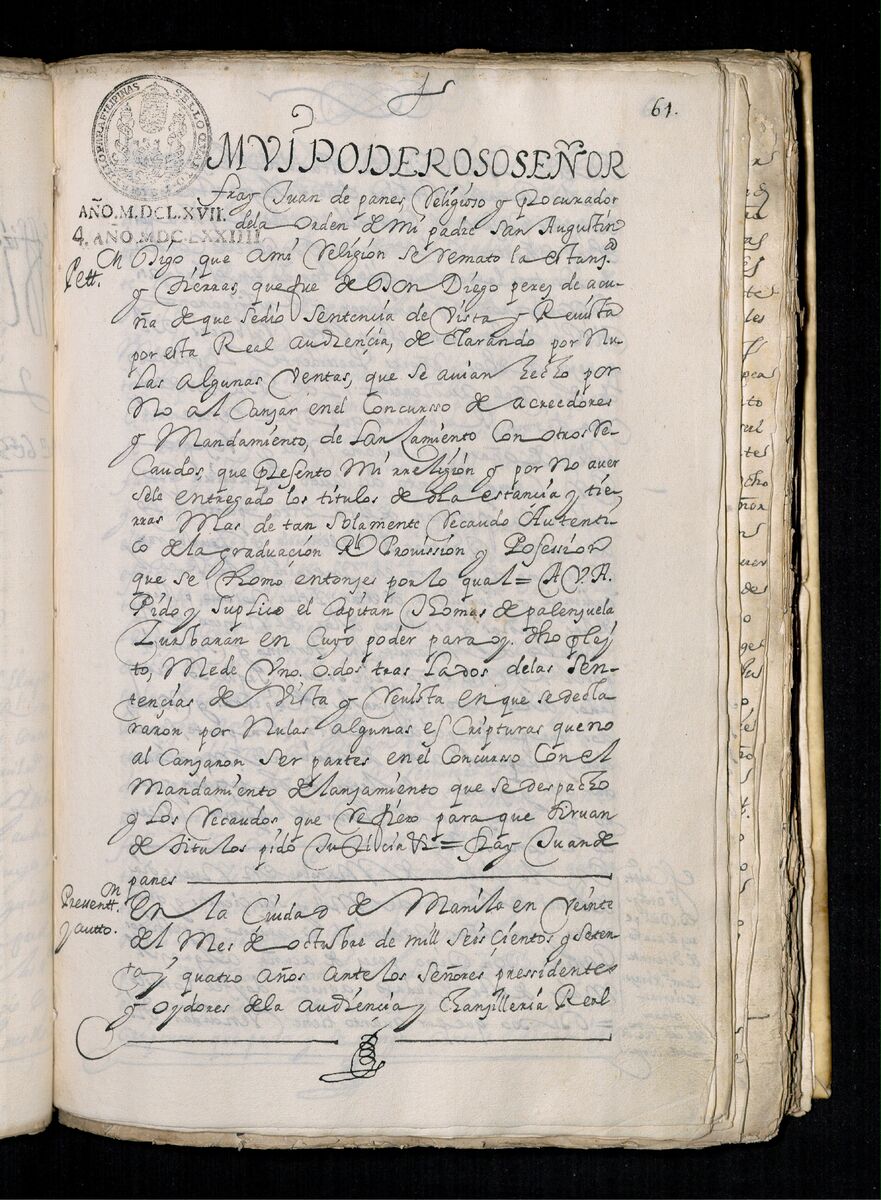 61.
SELLO QUARTO
MVI PODEROSO SEÑOR
fray Juan de panes Religioso y Procurador
AÑO.M.DCLXVII.
dela Orden de Mi padre San Augustin
4. AÑO MDC LXXIIII
Pett.on
Digo que ami Religion se remato la estanj.a
y tierras, que fue de Don Diego perez de acu-
ña de que sedio Sentencia de Vista y Revista
por esta Real audiençia, de clarando por Nu-
Las algunas Ventas, que se auian hecho por
No al Canzar enel Concursso de acreedores
y Mandamiento, de Lansamiento Con otros Re-
Caudos, que presento Mi rreligion y por No aver
sele entregado los titulos de dha estancia y tie-
rras Mas de tan Solamente Recaudo Autenti-
co de la graduaçion Rl Provission y Possession
que se thomo entonses por lo qual = A V. A.
Pido y Suplico el Capitan Thomas de palenzuela
Zurbaran en Cuyo poder para oy. dho pley
to, Mede Vno. O dos tras Lados delas Sen-
tencias de Vista y Revista en que se decla-
raron por Nulas algunas esCripturas que no
al Canzaron Ser partes en el Concurso Con el
Mandamiento de lanzamiento que se despacho
y Los Recaudos que Refiero para que Siruan
de titulos pido Justicia &a = fray Juan de
panes
Pressentt.on
y autto.
En la Ciudad de Manila en Veinte
del Mes de octubre de mill seis çientos y seten-
ta y quatro años Ante los Señores pressidente
y oydores dela audiencia y Chanzilleria Real